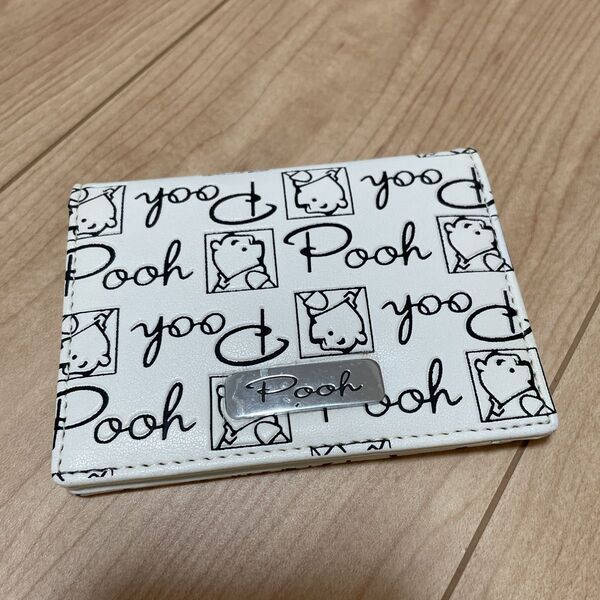 Pooh Pooh
Pooh Pooh
Pooh Pooh
Pooh Pooh
Pooh